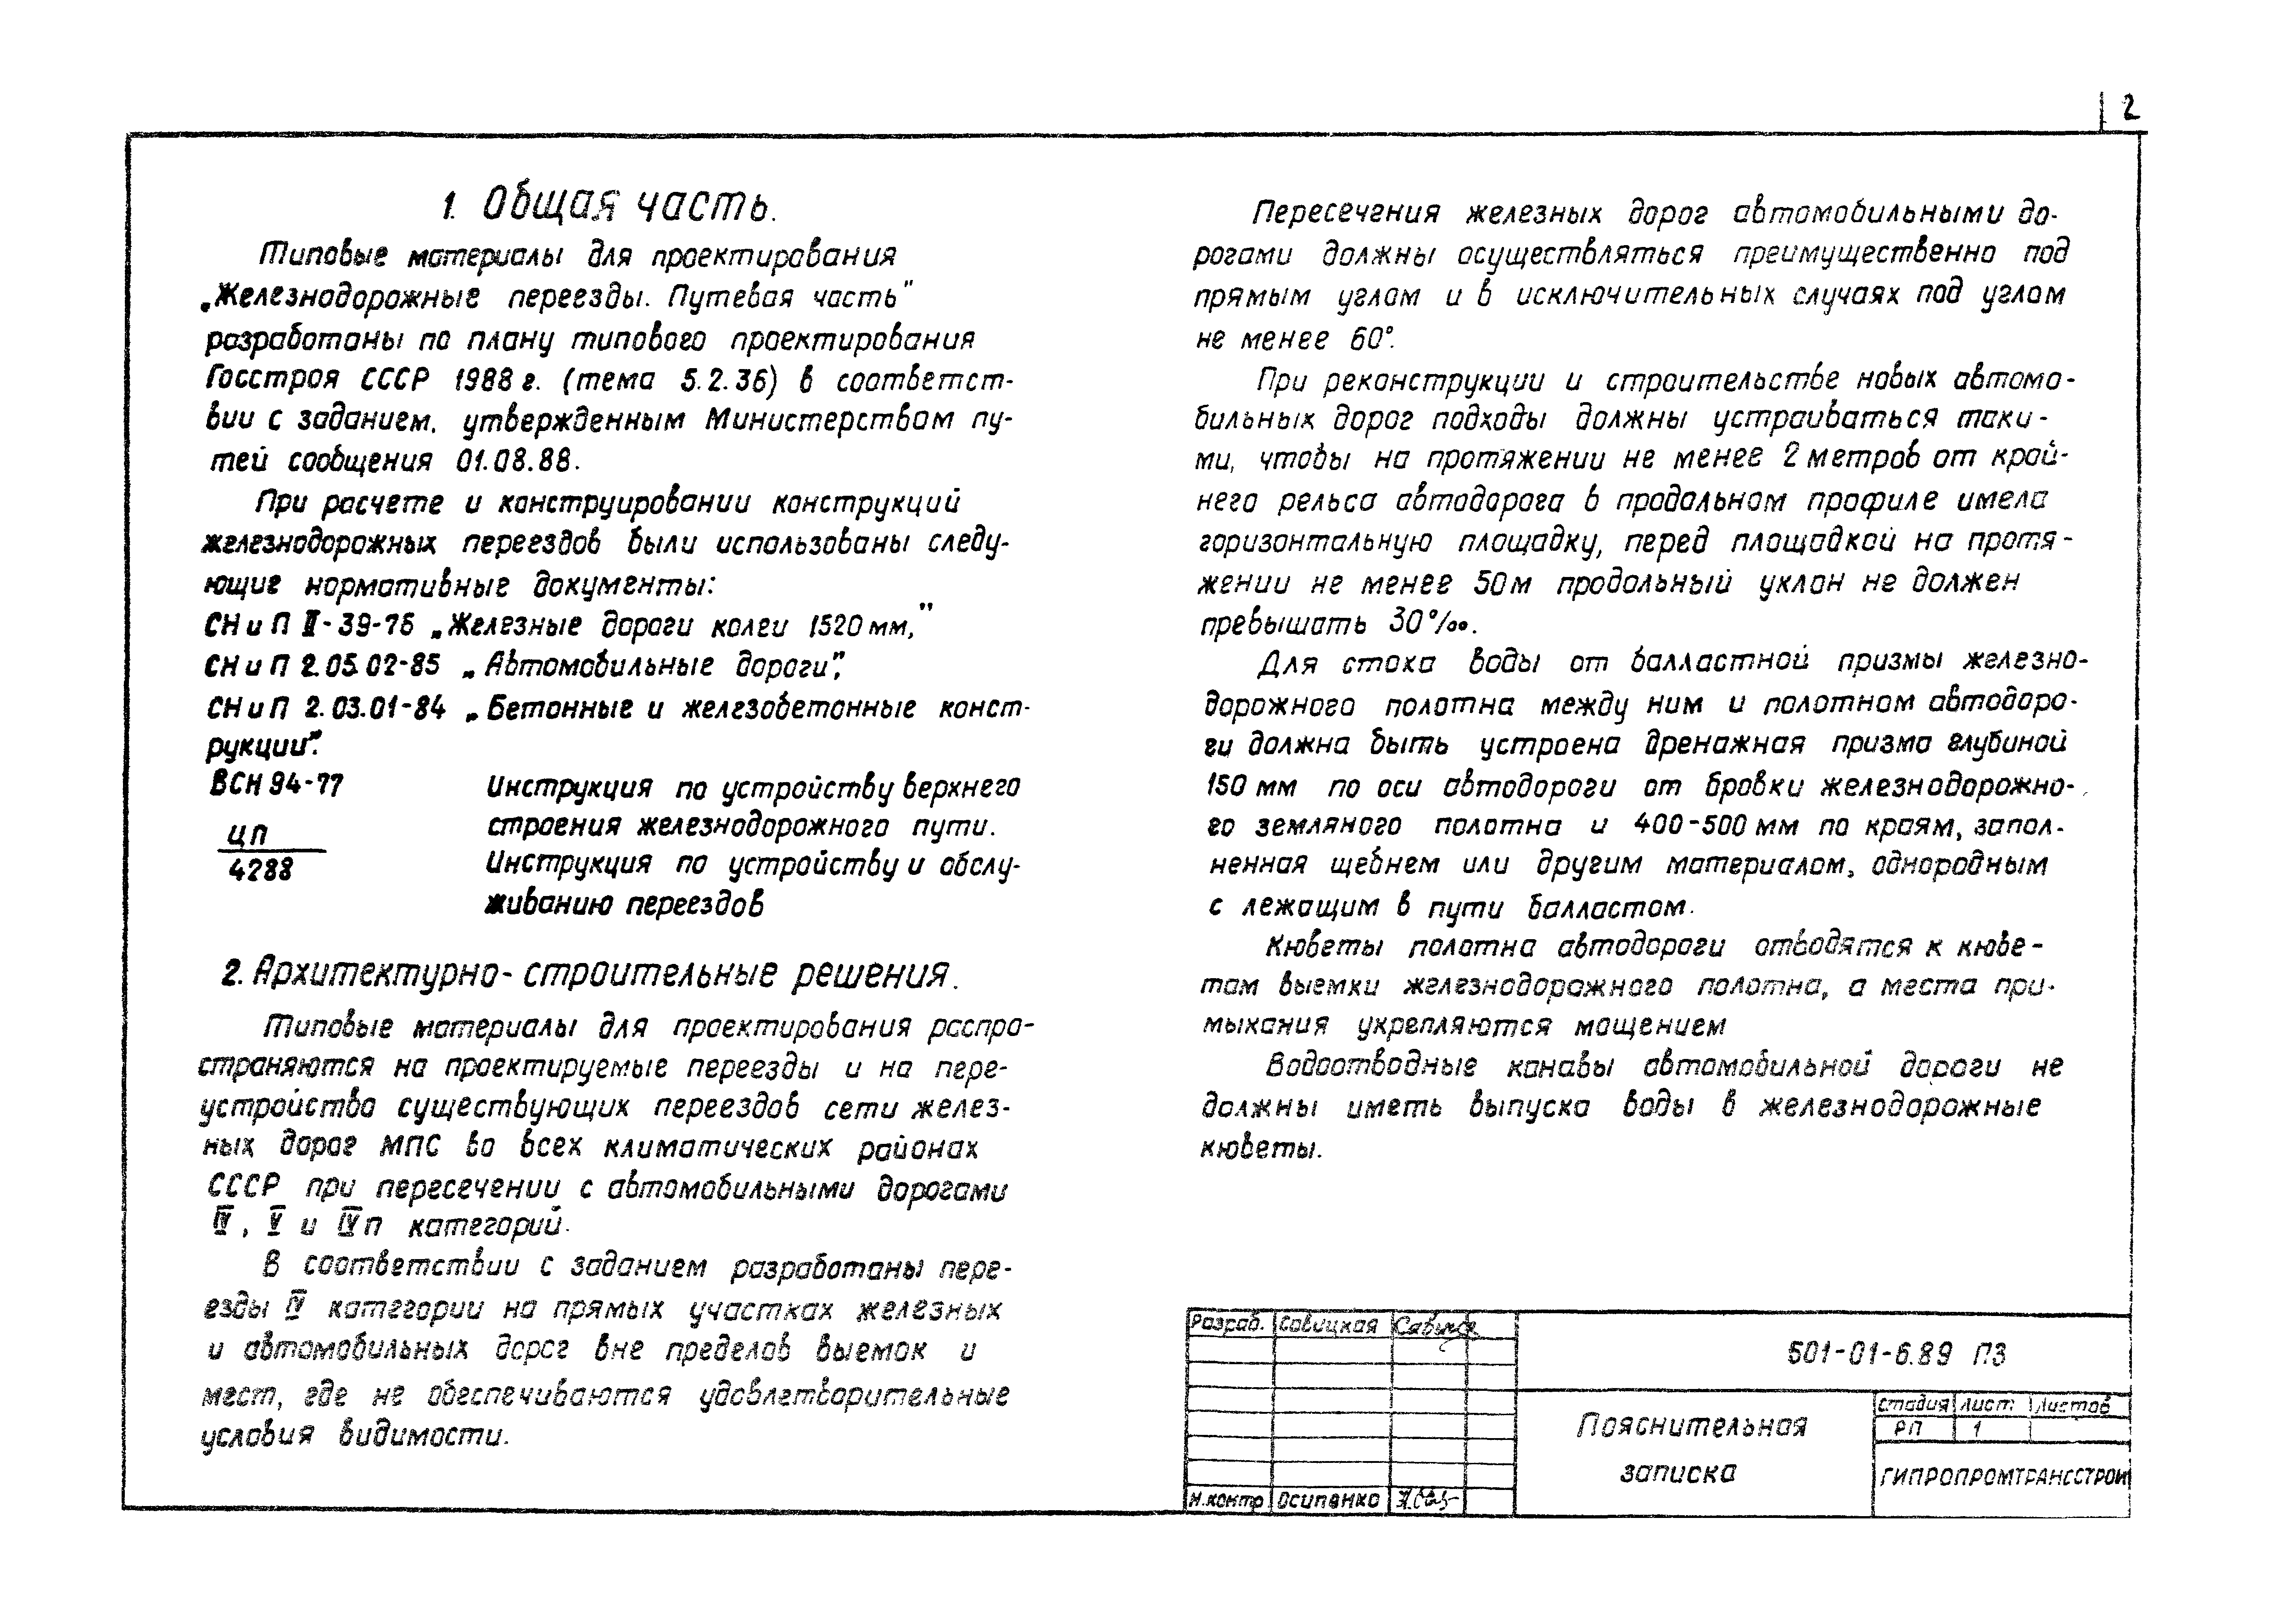 2
1. Общая часть.
Типовые материалы для проектирования
„Железнодорожные переезды. Путевая часть"
разработаны по плану типового проектирования
Госстроя СССР 1988 г. (тема 5.2.36) в соответст-
вии с заданием, утвержденным Министерством пу-
тей сообщения 01.08.88.
При расчете и конструировании конструкций
железнодорожных переездов были использованы следу-
ющие нормативные документы:
СНиП II-39-76 „Железные дороги колеи 1520 мм,"
СНиП 2.05.02-85 „Автомобильные дороги",
СНиП 2.03.01-84 „Бетонные и железобетонные конст-
рукции".
ВСН 94-77 Инструкция по устройству верхнего
строения железнодорожного пути.
ЦП
4288 Инструкция по устройству и обслу-
живанию переездов
2. Архитектурно-строительные решения.
Типовые материалы для проектирования распро-
страняются на проектируемые переезды и на пере-
устройство существующих переездов сети желез-
ных дорог МПС во всех климатических районах
СССР при пересечении с автомобильными дорогами
IV, V и IVп категорий.
В соответствии с заданием разработаны пере-
езды IV категории на прямых участках железных
и автомобильных дорог вне пределов выемок и
мест, где не обеспечиваются удовлетворительные
условия видимости.
Пересечения железных дорог автомобильными до-
рогами должны осуществляться преимущественно под
прямым углом и в исключительных случаях под углом
не менее 60°.
При реконструкции и строительстве новых автомо-
бильных дорог подходы должны устраиваться таки-
ми, чтобы на протяжении не менее 2 метров от край-
него рельса автодорога в продольном профиле имела
горизонтальную площадку, перед площадкой на протя-
жении не менее 50 м продольный уклон не должен
превышать 30‰.
Для стока воды от балластной призмы железно-
дорожного полотна между ним и полотном автодоро-
ги должна быть устроена дренажная призма глубиной
150 мм по оси автодороги от бровки железнодорожно-
го земляного полотна и 400-500 мм по краям, запол-
ненная щебнем или другим материалом, однородным
с лежащим в пути балластом.
Кюветы полотна автодороги отводятся к кюве-
там выемки железнодорожного полотна, а места при-
мыкания укрепляются мощением
Водоотводные канавы автомобильной дороги не
должны иметь выпуска воды в железнодорожные
кюветы.
Разраб. Савицкая
501-01-6.89 ПЗ
Пояснительная
записка
Стадия Лист Листов
РП 1
ГИПРОПРОМТРАНССТРОЙ
Н.контр Осипенко